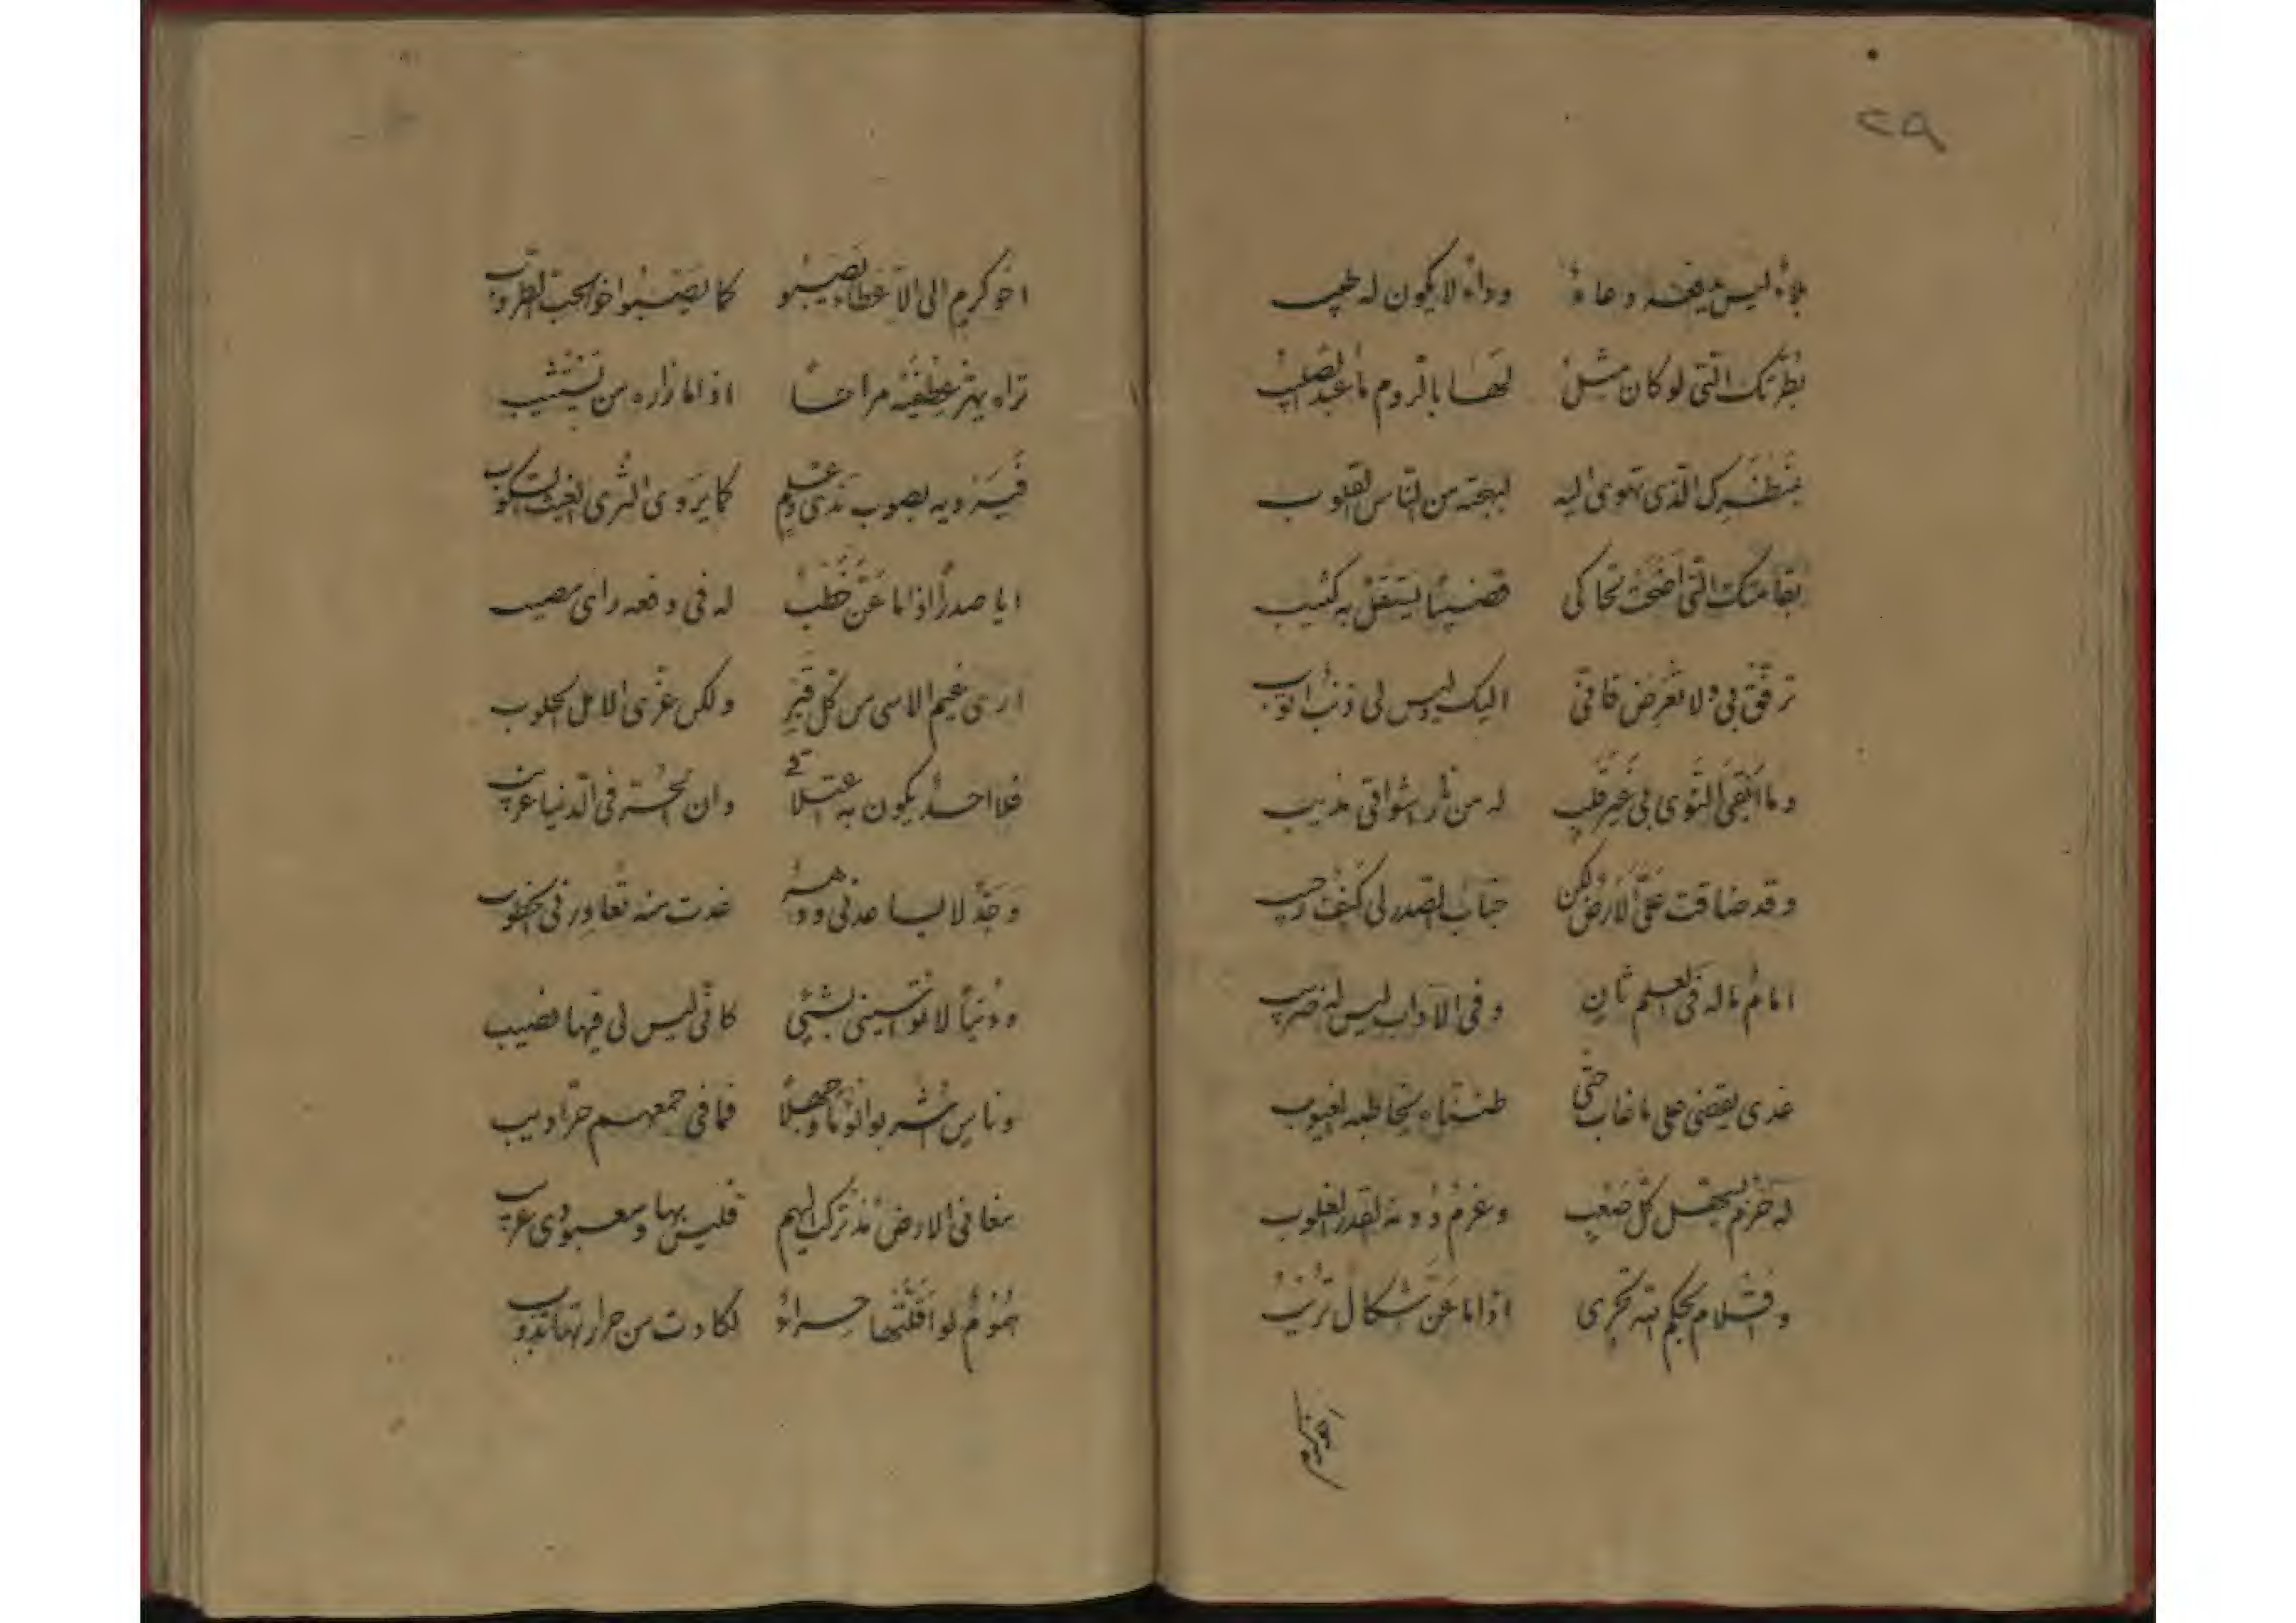 ٢٨
بلاء ليس يدفعه دعاء وداء لا يكون له طبيب
بطرتك التي لو كان مثل لها بالروم ما عبد الصليب
بمنظرك الذي تهوى اليه لبهجته من الناس القلوب
بقامتك التي اضحت تحاكي قضيبًا يستقل به كثيب
ترفق بي ولا تعرض فاني اليك وليس لي ذنب اتوب
وما ابقى النوى بي غير قلب له من نار اشواقي مذيب
وقد ضاقت علي الارض لكن جناب الصدر لي كنف رحيب
امام ما له في العلم ثان وفي الاداب ليس له ضريب
غدى يقضي على ما غاب حتى ظنناه تخاطبه الغيوب
له حزم يسهل كل صعب وعزم دونه القدر الغلوب
واقلام بحكم الله تجري اذا ما عن اشكال تريب
اخو كرم
اخو كرم الى الاعطاء يصبو كما يصبوا اخو الحب الطروب
تراه يهتز عطفيه مراحا اذا ما زاره من يستثيب
فيرويه بصوب ندى عميم كما يروي الثرى الغيث السكوب
ايا صدرًا اذا ما عن خطب له في دفعه راي مصيب
ارى غيم الاسى من كل قبر ولكن غرى الامل الخلوب
فلا احد يكون به اعتلاقي وان الحر في الدنيا غريب
وجد لا يساعدني ودهر غدت منه تعاورني الخطوب
ودنيا لا تواسيني بشيئ كاني ليس لي فيها نصيب
وناس اشربوا لوما وجهلا فما في جمعهم حر اديب
معا في الارض مذ تركت اليهم فليس بها ومعبودي عريب
هموم لو اقلتها حراء لكادت من حرارتها تذوب